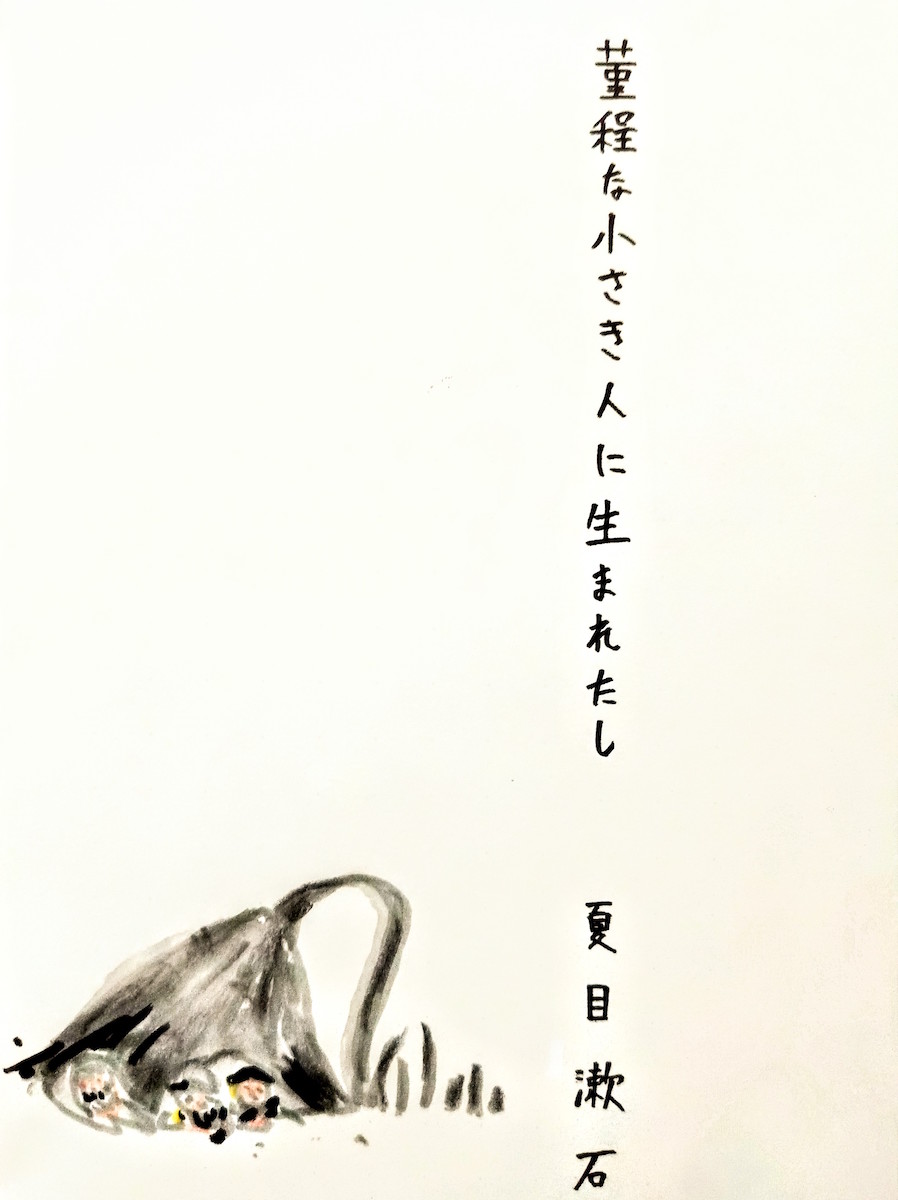 菫程な小さき人に生まれたし 夏目漱石